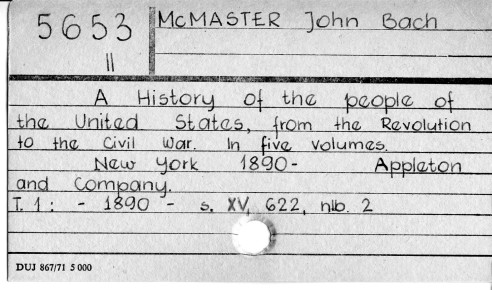 5653 McMASTER John Bach
II
A History of the people of
the United States, from the Revolution
to the Civil War. In five volumes.
New York 1890- Appleton
and Company.
T. 1: - 1890 - s. XV, 622, nlb. 2
DUJ 867/71 5 000